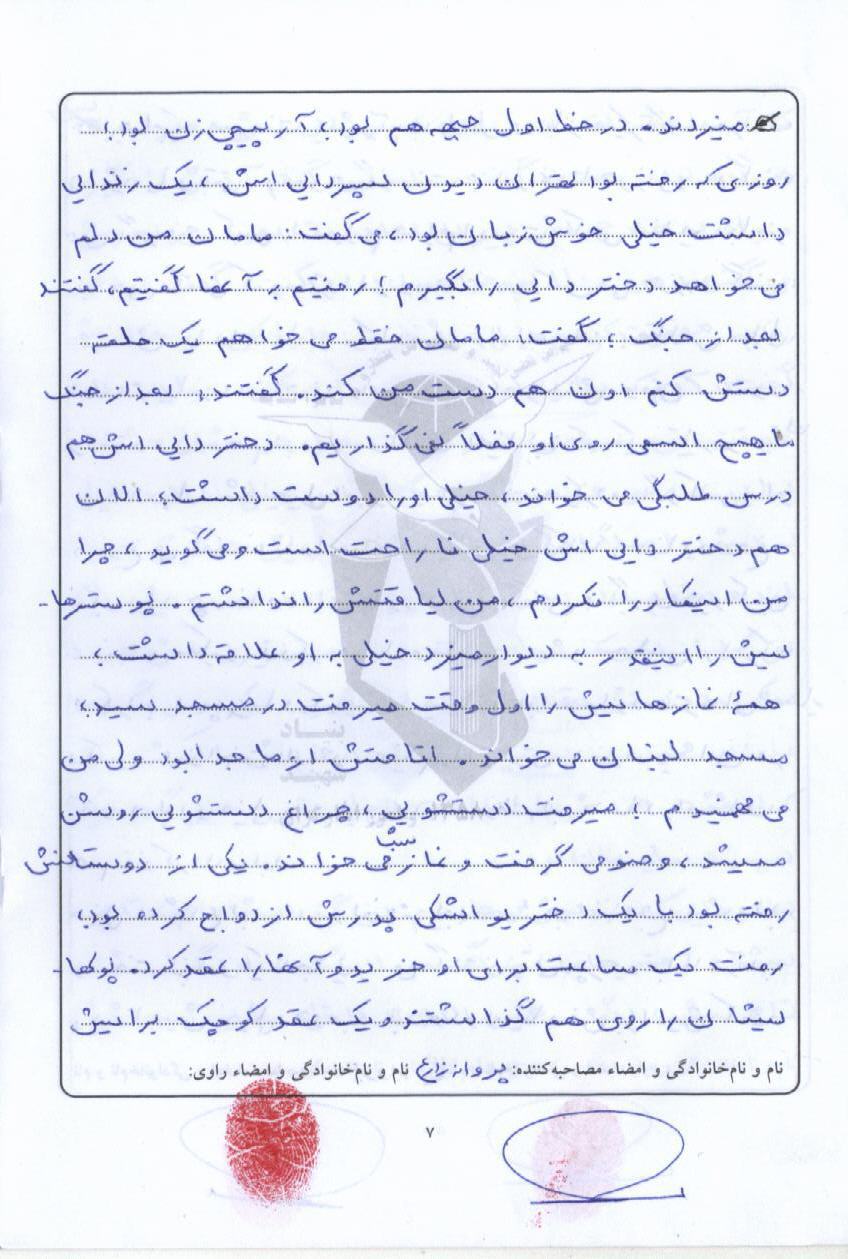 میزدند. در خط اول جبهه هم بود، آرپیچی زن بود،
روزی که رفته بود تهران دیدن پسردایی اش، یک زندایی
داشت خیلی خوش زبان بود، می گفت: مامان من دلم
می خواهد دختر دایی را بگیرم؛ رفتیم به آنها گفتیم، گفتند
بعد از جنگ؛ گفت: مامان فقط می خواهم یک حلقه
دستش کنم اون هم دست من کند. گفتند: بعد از جنگ
ما هیچ اسمی روی او فعلاً نمی گذاریم. دختر دایی اش هم
درس طلبگی می خواند، خیلی او را دوست داشت، الان
هم دختر دایی اش خیلی ناراحت است و می گوید، چرا
من اینکار را نکردم، من لیاقتش را نداشتم. پوسترها-
یش را اینقدر به دیوار میزد خیلی به او علاقه داشت،
همهٔ نمازهایش را اول وقت میرفت در مسجد سید،
مسجد لبنان می خواند. اتاقش از ما جدا بود ولی من
می فهمیدم؛ میرفت دستشویی، چراغ دستشویی روشن
میشد، وضو می گرفت و نماز شب می خواند. یکی از دوستانش
رفته بود با یک دختر یواشکی پدرش ازدواج کرده بود،
رفت یک ساعت برای او خرید و آنها را عقد کرد. پولها-
یشان را روی هم گذاشتند و یک عقد کوچک برایش
نام و نام‌خانوادگی و امضاء مصاحبه‌کننده: پروانه زارع نام و نام‌خانوادگی و امضاء راوی:
۷
بنیاد
شهید